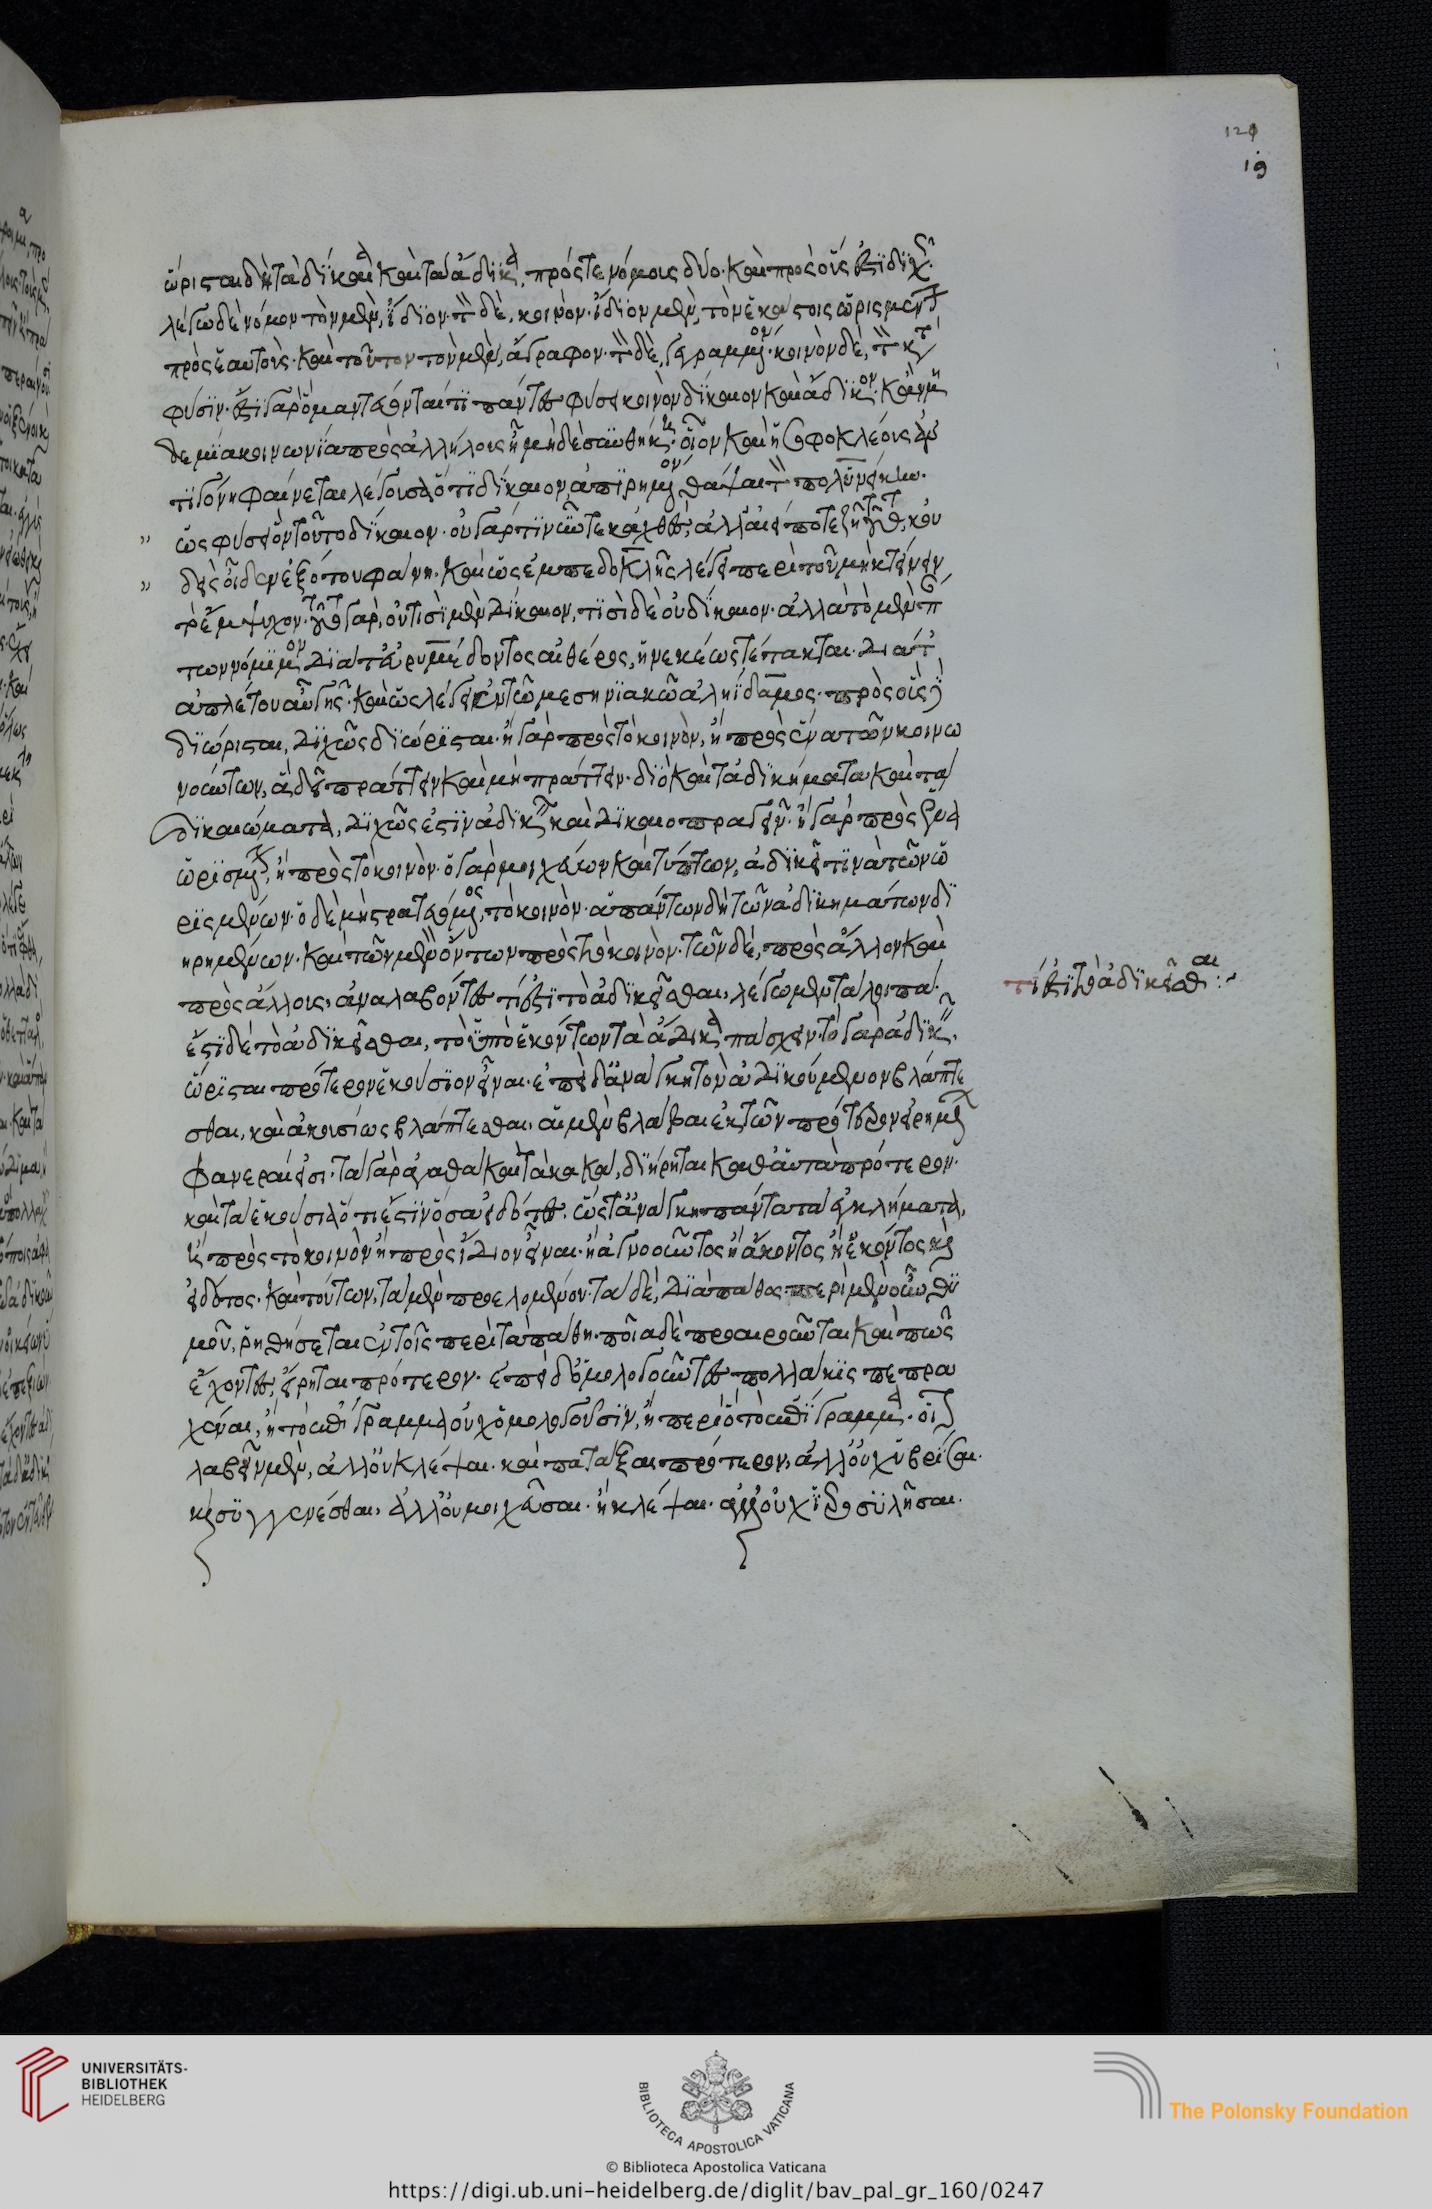 ὥρισται δὴ τὰ δίκαια καὶ τὰ ἄδικα, πρός τε νόμους δύο· καὶ πρὸς οὕς ἐστι διχῶς·
λέγω δὲ νόμον τὸν μὲν, ἴδιον· τὸν δὲ, κοινόν· ἴδιον μὲν, τὸν ἑκάστοις ὡρισμένον
πρὸς ἑαυτούς· καὶ τοῦτον τὸν μὲν, ἄγραφον· τὸν δὲ, γεγραμμένον· κοινὸν δὲ, τὸν κατὰ
φύσιν· ἔστι γὰρ ὃ μαντεύονταί τι πάντες φύσει κοινὸν δίκαιον καὶ ἄδικον· κἂν μη
δεμία κοινωνία πρὸς ἀλλήλους ᾖ μηδὲ συνθήκη· οἷον καὶ ἡ σοφοκλέους ἀν
τιγόνη φαίνεται λέγουσα ὅτι δίκαιον, ἀπειρημένον θάψαι τὸν πολυνείκην·
ὡς φύσει ὂν τοῦτο δίκαιον· οὐ γάρ τι νῦν τε κἀχθές, ἀλλ' ἀεί ποτε ζῇ τοῦτο, κοὐ
δεὶς οἶδεν ἐξ ὅτου φάνη· καὶ ὡς ἐμπεδοκλῆς λέγει περὶ τοῦ μὴ κτείνειν
τὸ ἔμψυχον· τοῦτο γὰρ, οὐ τισὶ μὲν δίκαιον, τισὶ δὲ οὐ δίκαιον· ἀλλὰ τὸ μὲν πάν
των νόμιμον διά τ' εὐρυμέδοντος αἰθέρος, ἠνεκέως τέτακται διά τ'
ἀπλέτου αὐγῆς· καὶ ὡς λέγει ἐν τῷ μεσηνιακῷ πρὸς οὓς δὲ
διώρισται, διχῶς διώρισται· ἢ γὰρ πρὸς τὸ κοινὸν, ἢ πρὸς ἕνα τῶν κοινω
νούντων, ἃ δεῖ πράττειν καὶ μὴ πράττειν· διὸ καὶ τὰ ἀδικήματα καὶ τὰ
δικαιώματα, διχῶς ἔστιν ἀδικεῖν καὶ δικαιοπραγεῖν· ἢ γὰρ πρὸς ἕνα
ὡρισμένον, ἢ πρὸς τὸ κοινόν· ὁ γὰρ μοιχεύων καὶ τύπτων, ἀδικεῖ τινὰ τῶν ὡ
ρισμένων· ὁ δὲ μὴ στρατευόμενος, τὸ κοινόν· ἁπάντων δὴ τῶν ἀδικημάτων δι
ῃρημένων· καὶ τῶν μὲν ὄντων πρὸς τὸ κοινὸν· τῶν δὲ, πρὸς ἄλλον καὶ
πρὸς ἄλλους, ἀναλαβόντες τί ἐστι τὸ ἀδικεῖσθαι, λέγωμεν τὰ λοιπά·
ἔστι δὲ τὸ ἀδικεῖσθαι, τὸ ὑπὸ ἑκόντων τὰ ἄδικα πάσχειν· τὸ γὰρ ἀδικεῖν,
ὥρισται πρότερον ἑκούσιον εἶναι· ἐπεὶ δ' ἀνάγκη τὸν ἀδικούμενον βλάπτε
σθαι, καὶ ἀκουσίως βλάπτεσθαι, αἱ μὲν βλάβαι ἐκ τῶν πρότερον εἰρημένων
φανεραί εἰσι· τὰ γὰρ ἀγαθὰ καὶ τὰ κακὰ, διῄρηται καθ' αὑτὰ πρότερον·
καὶ τὰ ἑκούσια ὅτι ἔστιν ὅσα εἰδότες· ὥστ' ἀνάγκη πάντα τὰ ἐγκλήματα,
ἢ πρὸς τὸ κοινὸν ἢ πρὸς ἴδιον εἶναι· ἢ ἀγνοοῦντος ἢ ἄκοντος ἢ ἑκόντος καὶ
εἰδότος· καὶ τούτων, τὰ μὲν προελομένου· τὰ δὲ, διὰ πάθος· περὶ μὲν οὖν θυ
μοῦ, ῥηθήσεται ἐν τοῖς περὶ τὰ πάθη· ποῖα δὲ προαιροῦνται καὶ πῶς
ἔχοντες, εἴρηται πρότερον· ἐπεὶ δ' ὁμολογοῦντες πολλάκις πεπρα
χέναι, ἢ τὸ ἐπίγραμμα οὐχ ὁμολογοῦσιν, ἢ περὶ ὃ τὸ ἐπίγραμμα· οἷον
λαβεῖν μὲν, ἀλλ' οὐ κλέψαι· καὶ πατάξαι πρότερον, ἀλλ' οὐχ ὑβρίσαι·
καὶ συγγενέσθαι, ἀλλ' οὐ μοιχεῦσαι· ἢ κλέψαι· ἀλλ' οὐχ ἱεροσυλῆσαι·
τί ἐστι τὸ ἀδικεῖσθαι
19
UNIVERSITÄTS-
BIBLIOTHEK
HEIDELBERG
BIBLIOTECA APOSTOLICA VATICANA
The Polonsky Foundation
© Biblioteca Apostolica Vaticana
https://digi.ub.uni-heidelberg.de/diglit/bav_pal_gr_160/0247